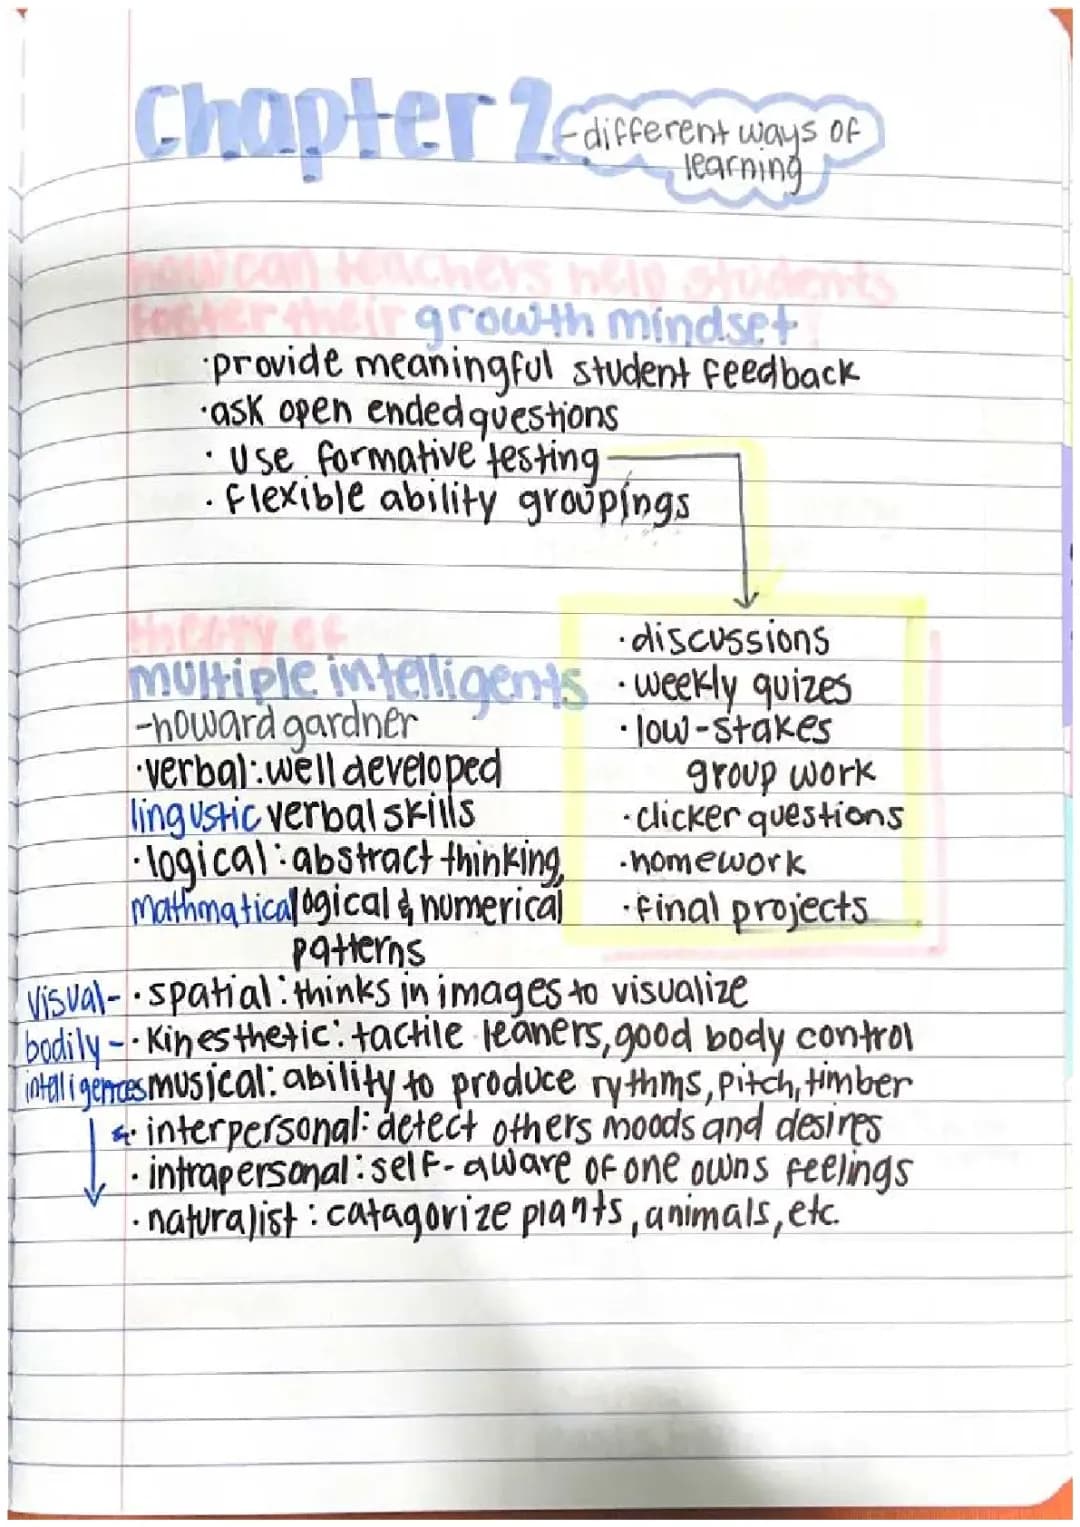 Chapter 2
-different ways of
learning
how can teachers help students
foster their growth mindset?
·provide meaningful student feedback
·ask open ended questions
· Use formative testing
· flexible ability groupings
·discussions
·weekly quizes
·low-stakes
group work
·clicker questions
·homework
·final projects
theory of
multiple intelligents
-howard gardner
·verbal: well developed
lingustic verbal skills
·logical: abstract thinking,
mathmatical logical & numerical
patterns
Visual- · spatial: thinks in images to visualize
bodily - · Kinesthetic: tactile leaners, good body control
intelligences musical: ability to produce rythms, pitch, timber
· interpersonal: detect others moods and desires
· intrapersonal: self-aware of one owns feelings
· naturalist: catagorize plants, animals, etc.